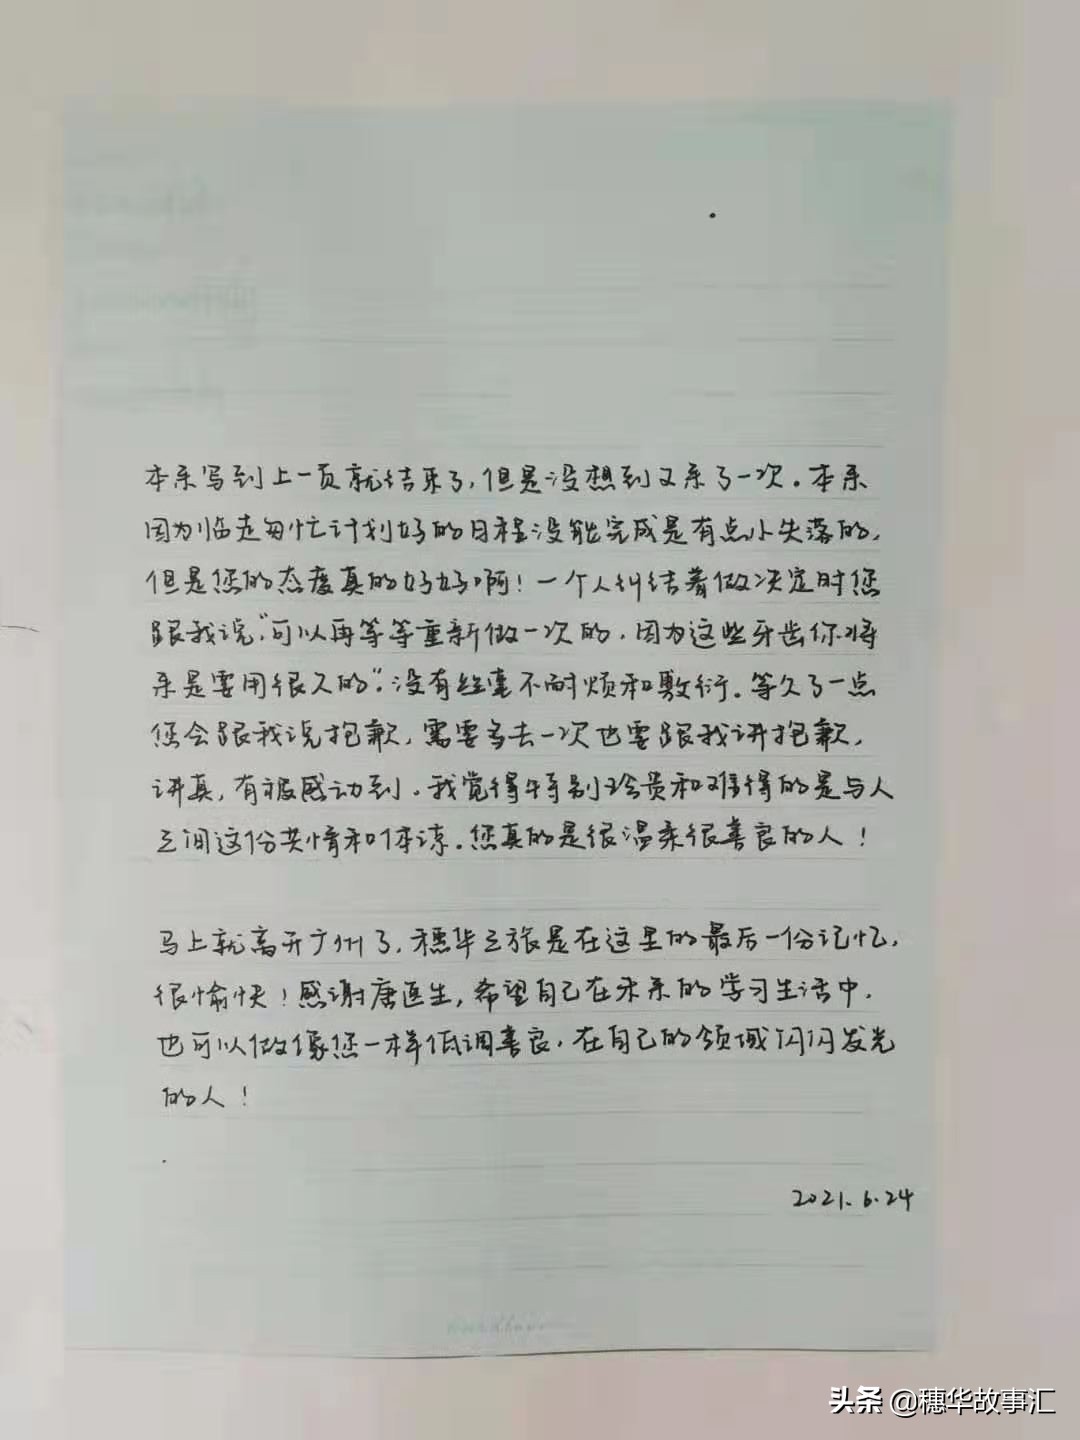 本来写到上一页就结束了，但是没想到又来了一次。本来
因为临走匆忙计划好的日程没能完成是有点小失落的，
但是您的态度真的好好啊！一个人纠结着做决定时您
跟我说，“可以再等等重新做一次的，因为这些牙齿你将
来是要用很久的”。没有丝毫不耐烦和敷衍。等久了一点
您会跟我说抱歉，需要多去一次也要跟我讲抱歉，
讲真，有被感动到。我觉得特别珍贵和难得的是与人
之间这份共情和体谅。您真的是很温柔很善良的人！
马上就离开广州了，穗华之旅是在这里的最后一份记忆，
很愉快！感谢唐医生，希望自己在未来的学习生活中，
也可以做像您一样低调善良，在自己的领域闪闪发光
的人！
2021.6.24
头条 @穗华故事汇